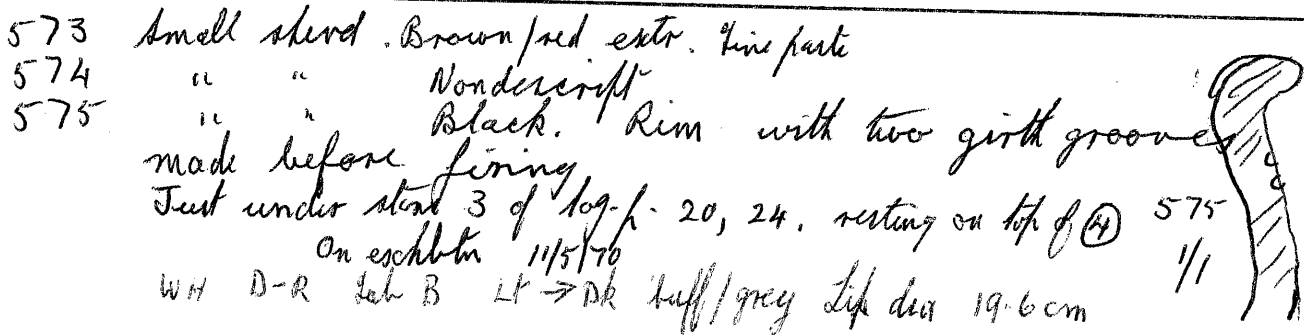 573 Small sherd. Brown/red extr. Fine paste
574 " " Nondescript
575 " " Black. Rim with two girth grooves
made before firing
Just under stone 3 of log-p. 20, 24. resting on top of ④ 575
On exhbtn 11/5/70 1/1
WH D-R Tab B Lt → Dk buff/grey Lip dia 19.6 cm